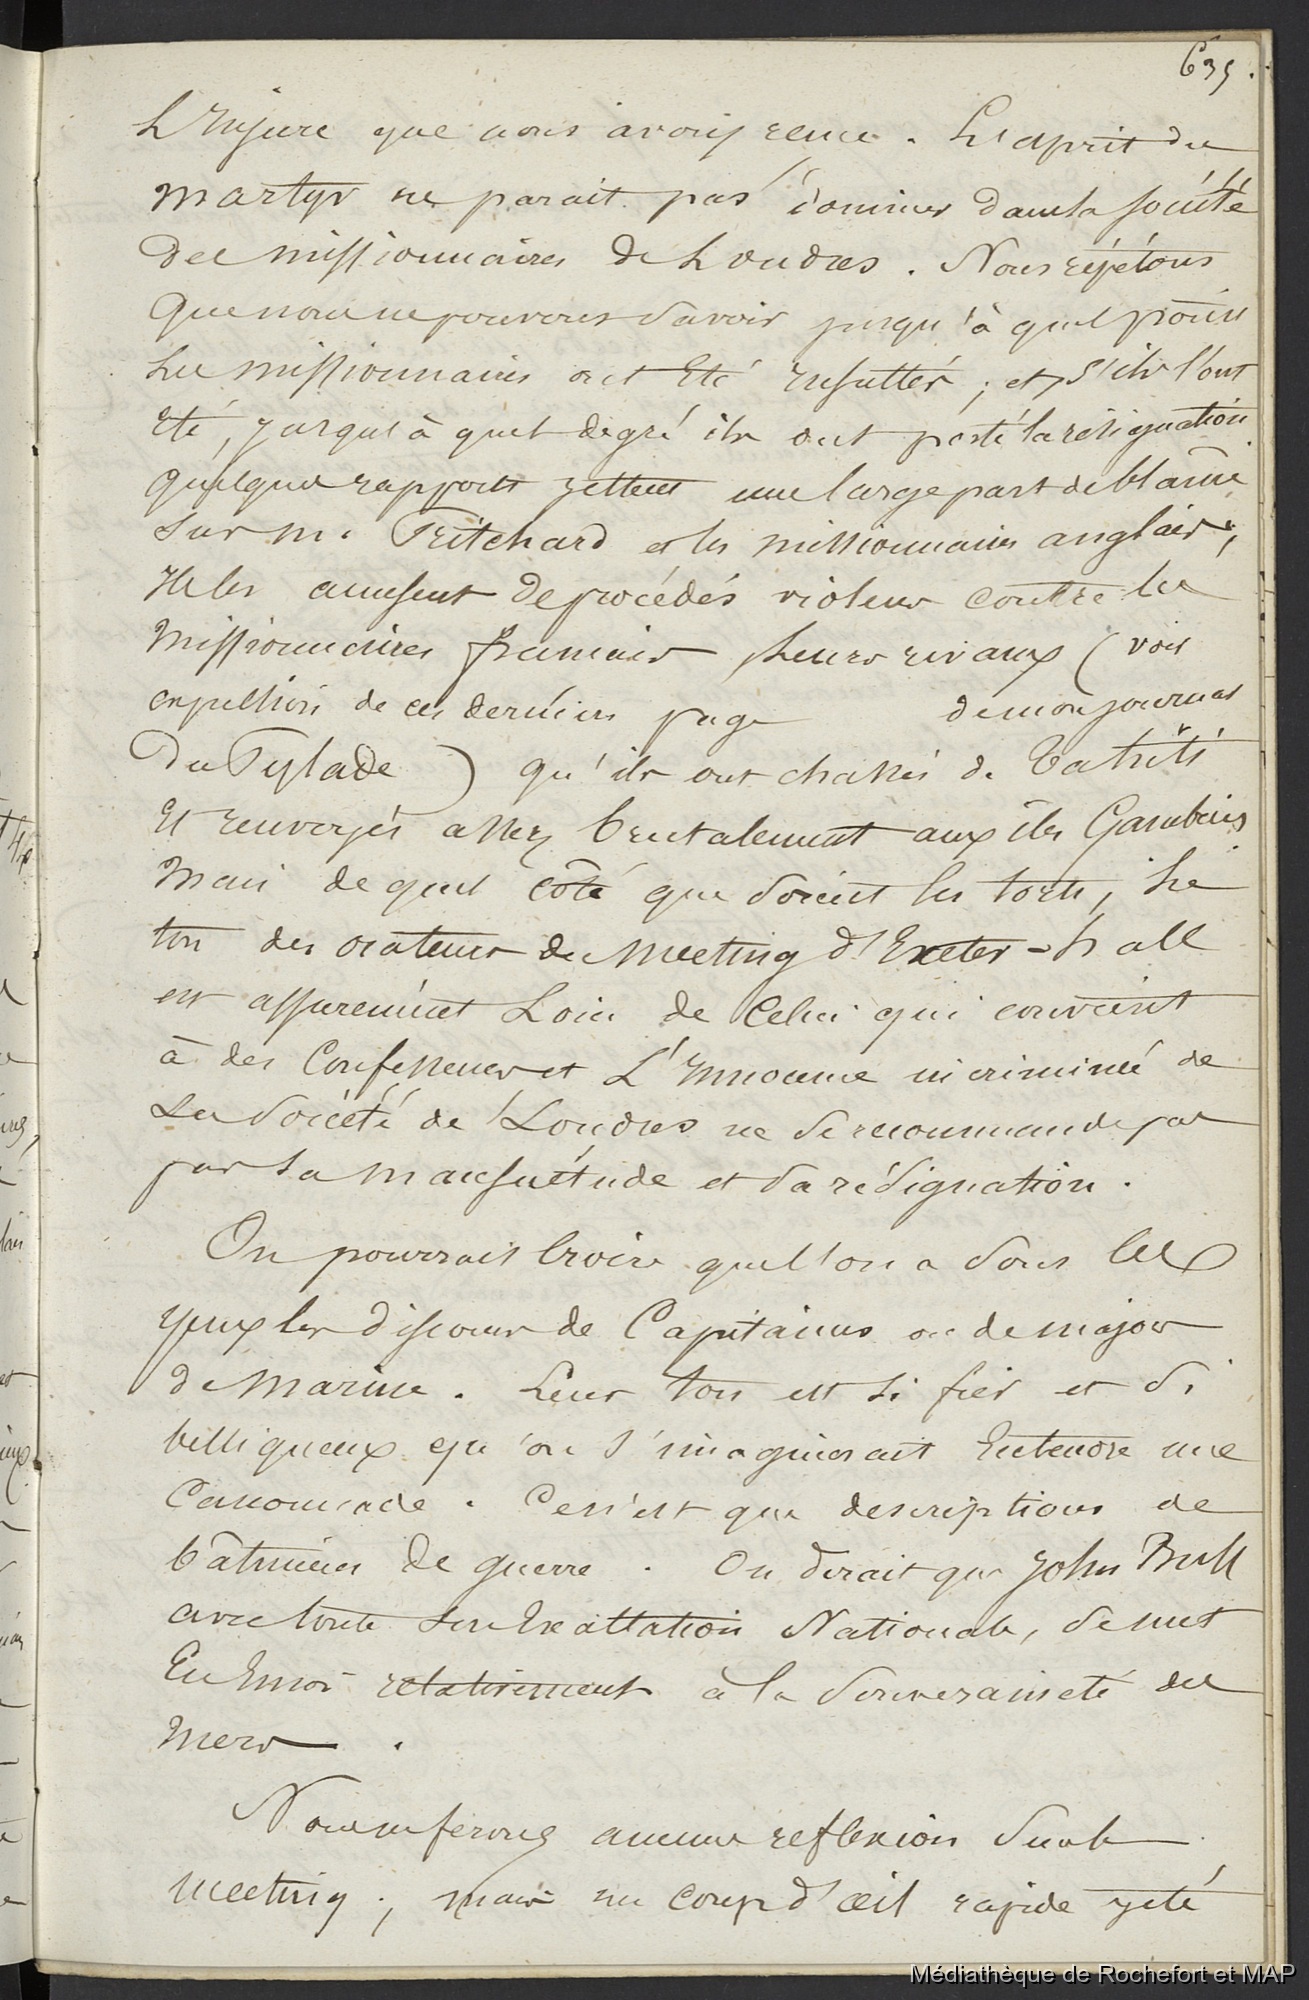 635.
L'injure que nous avons reçue. L'esprit du
martyr ne parait pas dominer dans la société
des missionnaires de Londres. Nous répétons
que nous ne pouvons savoir jusqu'à quel point
Les missionnaires ont été insultés; et, s'ils l'ont
été, jusqu'à quel degré ils ont porté la résignation
quelques rapports jettent une large part de blâme
sur mr Pritchard et les missionnaires anglais;
Ils les accusent de procédés violens contre les
Missionnaires francais Leurs rivaux (voir
expulsion de ces derniers page de mon journal
Du Pylade) qu'ils ont chassés de Tahiti
Et renvoyés assez brutalement aux îles Gambiers
Mais de quel côté que soient les torts, Le
ton des orateurs du Meeting d'Exeter-hall
est assurement Loin de Celui qui convient
à des Confesseurs et L'Innocence incriminée de
La Société de Londres ne se recommande pas
par sa mansuétude et sa résignation.
On pourrait Croire que l'on a sous les
yeux les discours de Capitaines ou de major
de Marine. Leur ton est si fier et si
belliqueux qu'on s'imaginerait Entendre une
Canonnade. Ce n'est que descriptions de
bâtimens de guerre. On dirait que John Bull
avec toute son Exaltation Nationale, se met
En Emoi relativement à la Souveraineté des
Mers.
Nous ne ferons aucune reflexion sur le
meeting; mais un coup d'œil rapide jeté
Médiathèque de Rochefort et MAP